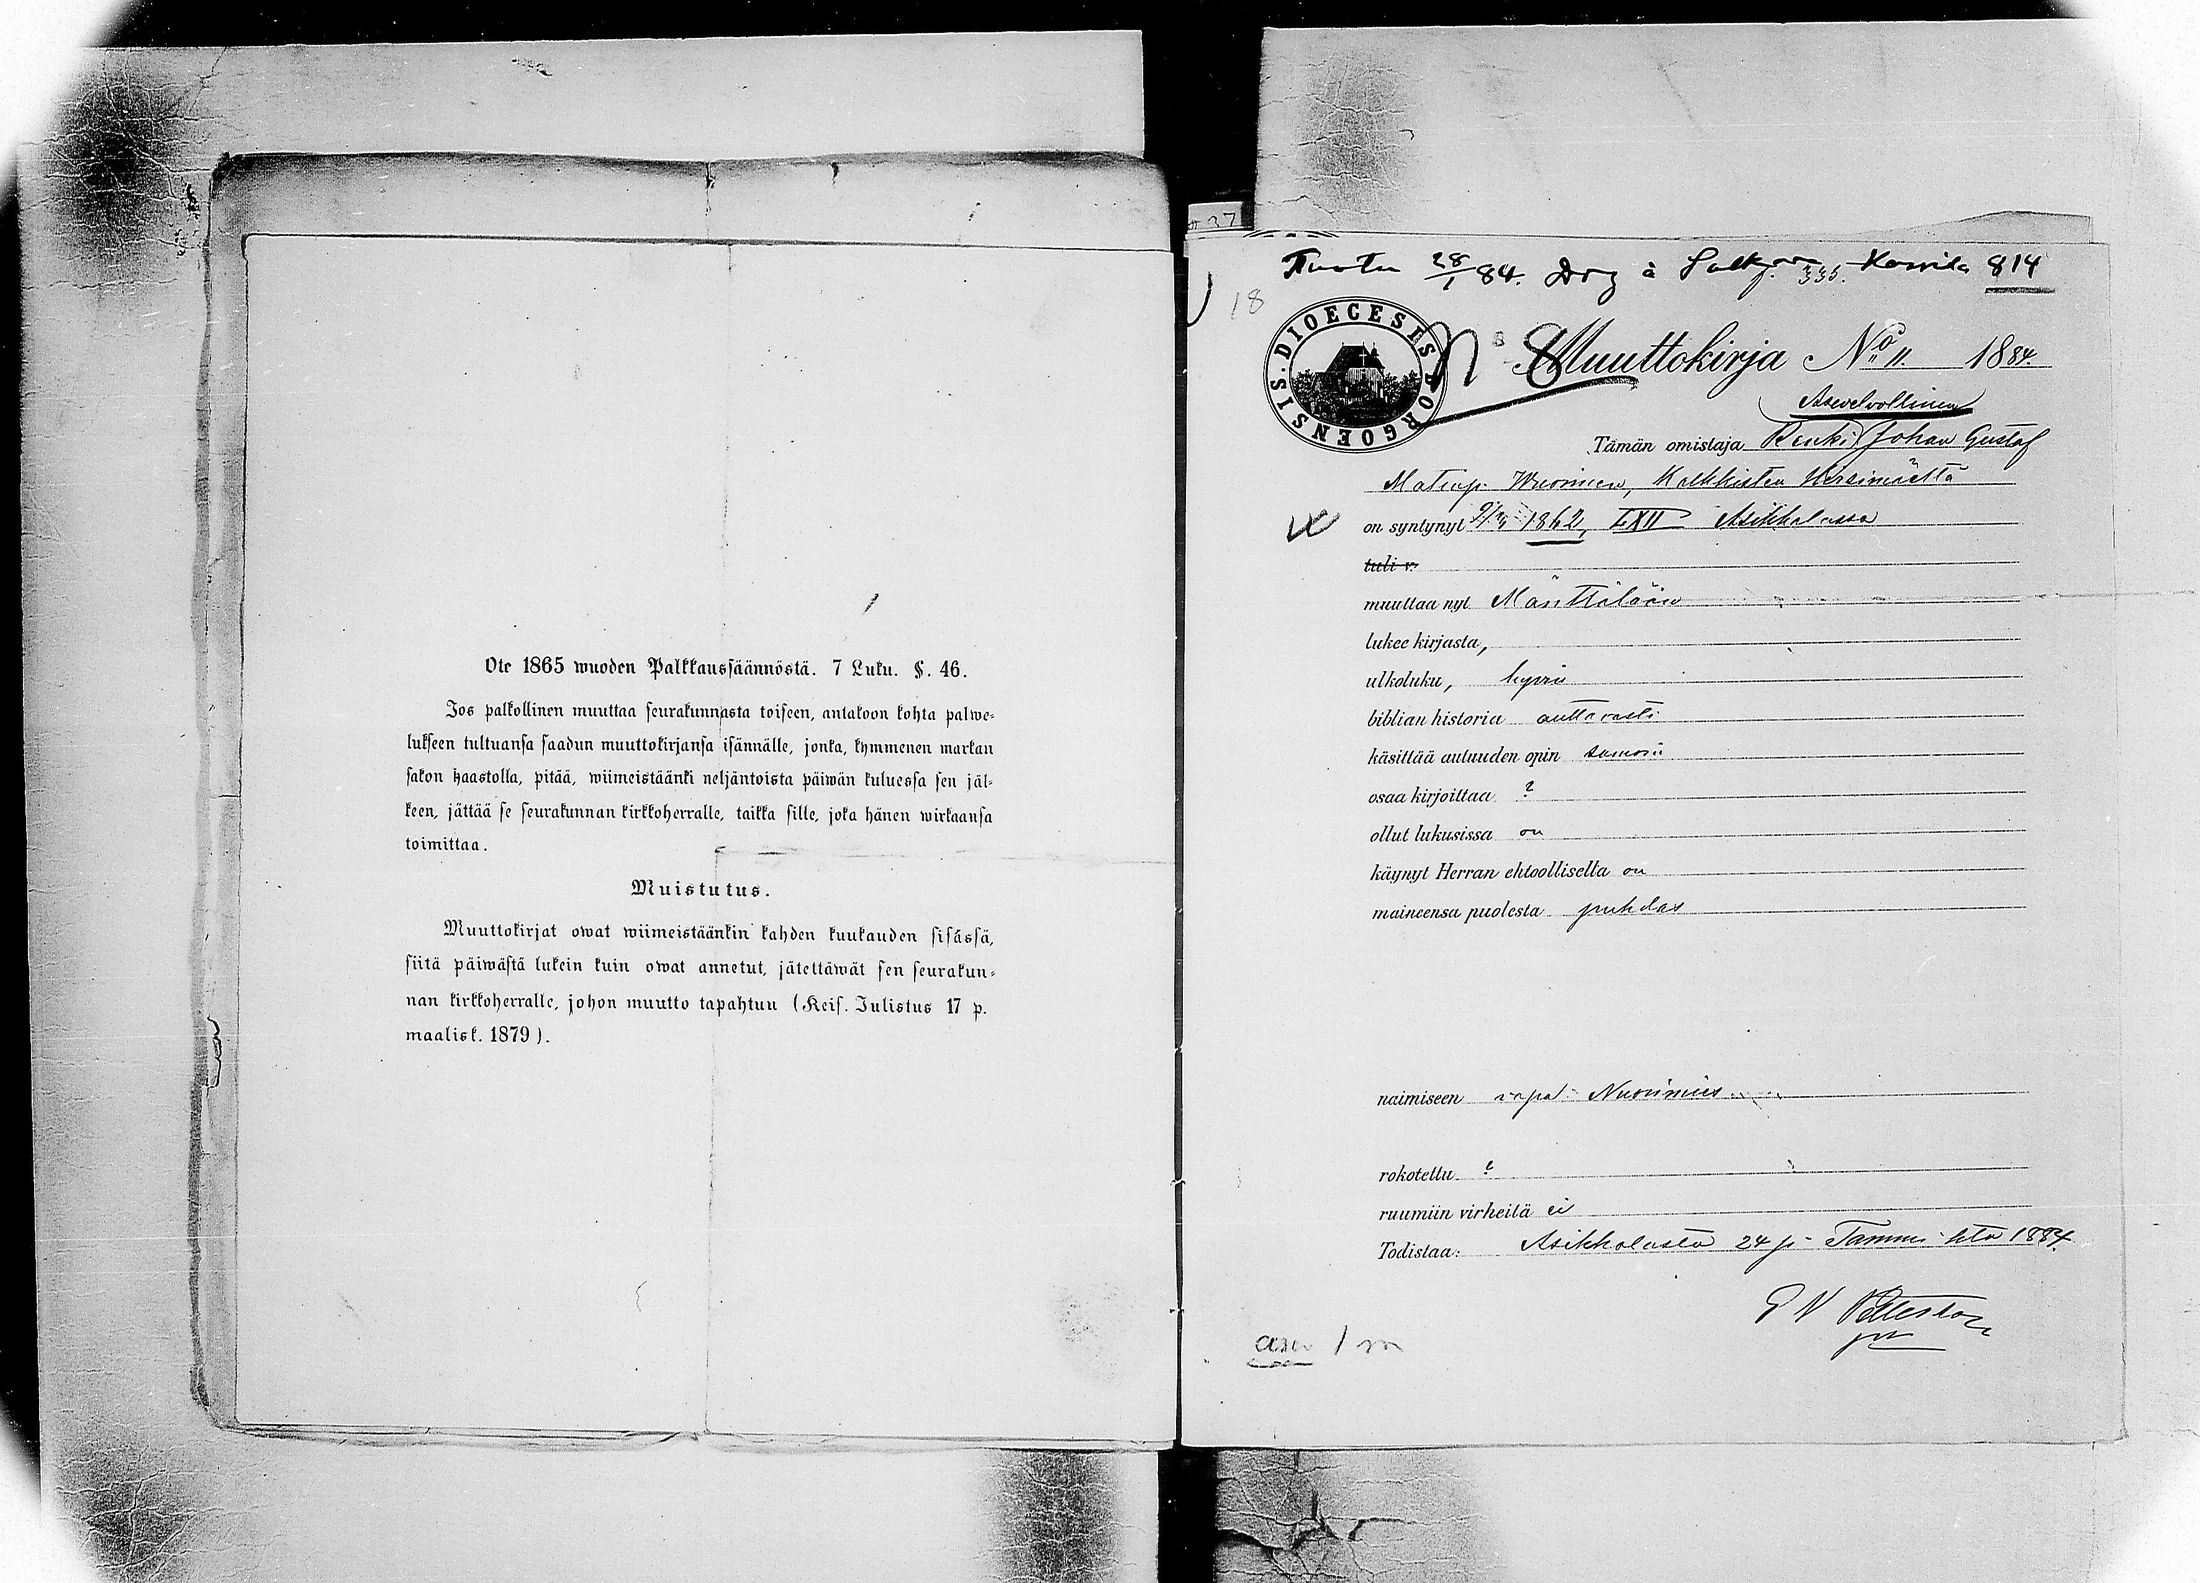 Ote 1865 wuoden Palkkaussäännöstä. 7 Luku. §. 46.
Jos palkollinen muuttaa seurakunnasta toiseen, antakoon kohta palwe-
lukseen tultuansa saadun muuttokirjansa isännälle, jonka, kymmenen markan
sakon haastolla, pitää, wiimeistäänki neljäntoista päiwän kuluessa sen jäl-
keen, jättää se seurakunnan kirkkoherralle, taikka sille, joka hänen wirkaansa
toimittaa.
Muistutus.
Muuttokirjat owat wiimeistäänkin kahden kuukauden sisässä,
siitä päiwästä lukein kuin owat annetut, jätettäwät sen seurakun-
nan kirkkoherralle, johon muutto tapahtuu (Keis. Julistus 17 p.
maalisk. 1879).
37
Tuotu 28/1 84. 335. 814
18
DIOECESIS BORGOENSIS.
N° 8
Muuttokirja No 11. 1884.
Asevelvollinen
Tämän omistaja Renki Johan Gustaf
Matinp. Wuorinen, Kalkkisten
on syntynyt 1862, LXII Asikkalassa
tuli v.
muuttaa nyt Mänttälään
lukee kirjasta,
ulkoluku, hyvin
biblian historia auttavasti
käsittää autuuden opin samoin
osaa kirjoittaa ?
ollut lukusissa on
käynyt Herran ehtoollisella on
maineensa puolesta puhdas
naimiseen vapa Nuorimies
rokotettu ?
ruumiin virheitä ei
Todistaa: Asikkalasta 24 p. Tammi kta 1884.
1 m